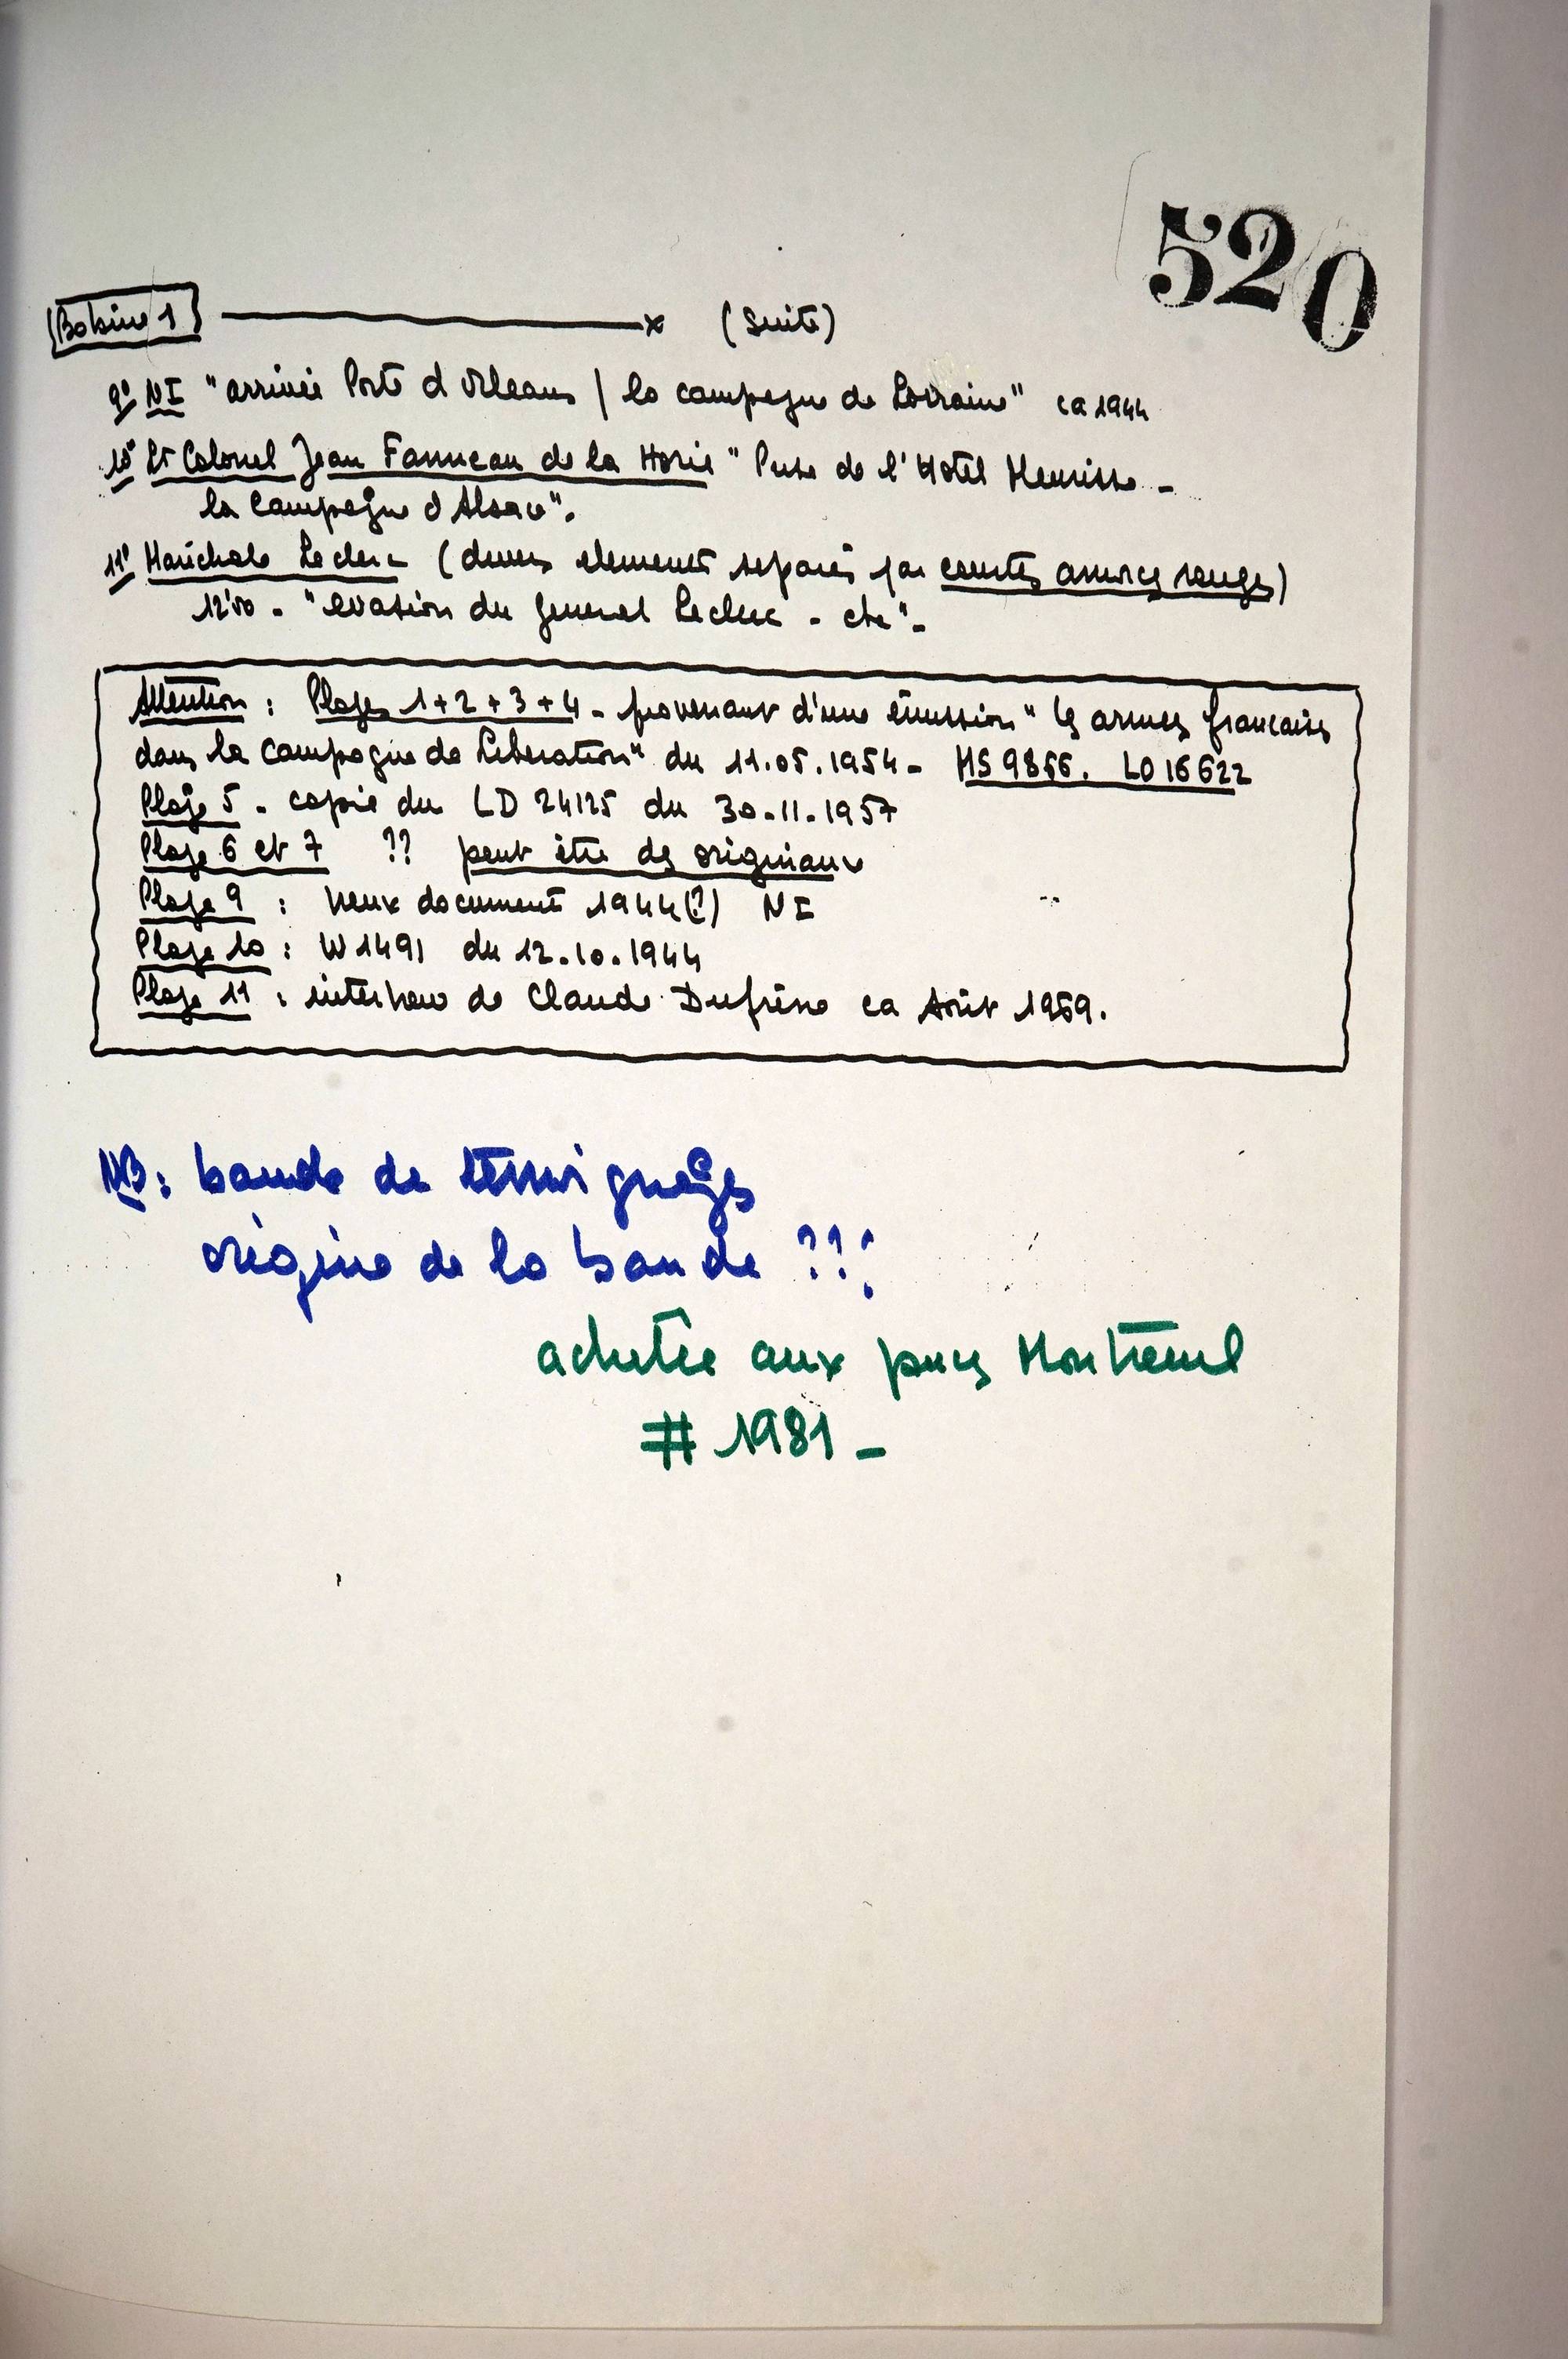 520
Bobine 1 x (suite)
9° NI "arrivée Porte d'Orleans / la campagne de Lorraine" ca 1944
10° Lt Colonel Jean Fanneau de la Horie "Prise de l'Hotel Meurisse -
la Campagne d'Alsace".
11° Maréchale Leclerc (divers elements separés par courtes amorces rouges)
12'00 - "evasion du General Leclerc - etc" -
Attention : Plages 1+2+3+4 - provenant d'une émission "les armées francaises
dans la campagne de Liberation" du 11.05.1954 - LO 16622
Plage 5 - copie du LD 24125 du 30.11.1957
Plage 6 et 7 ?? peut être des originaux
Plage 9 : vieux document 1944(?) NI
Plage 10 : W1491 du 12.10.1944
Plage 11 : interview de Claude Dufresne ca Août 1969.
NB : bande de témoignages
origine de la bande ???
achetée aux puces Montreuil
# 1981 -